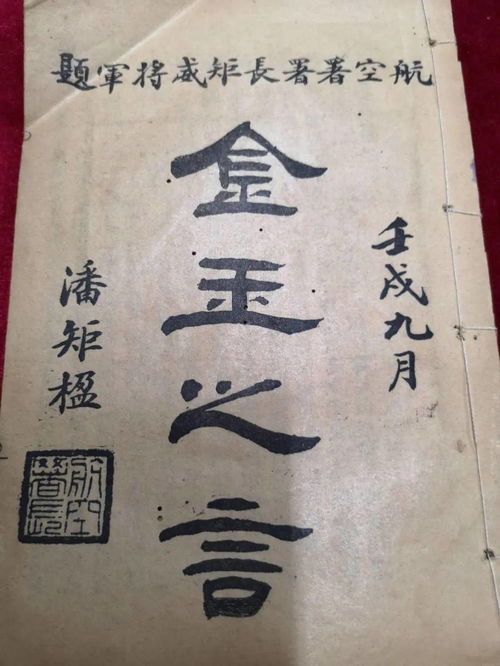 航空署署長矩威將軍題
壬戌九月
金玉之言
潘矩楹
航空署長